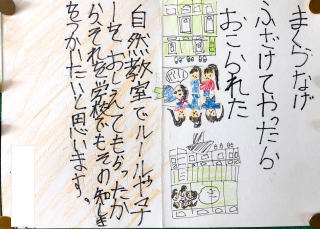 まくらなげ
ふざけてやったら
おこられた
自然教室でルールやマナ
ーを、おしえてもらったか
らそれを学校でもその知しき
をつかいたいと思います。